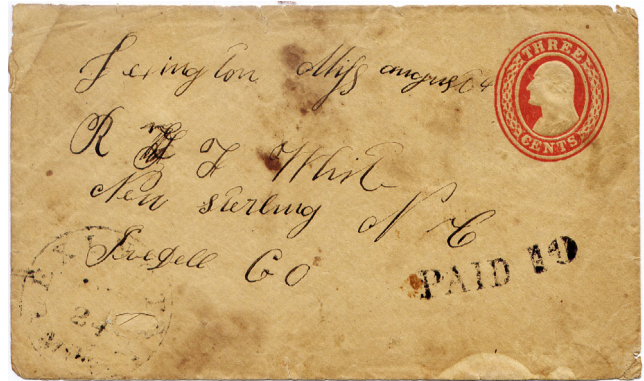 Lexington Miss august 64
THREE
CENTS
R W F White
New sterling N C
Iredell CO
PAID 10
24